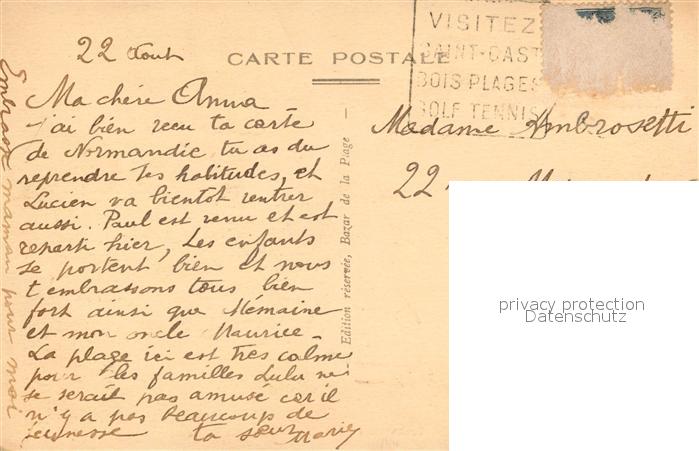 22 Aout
CARTE POSTALE
VISITEZ
SAINT-CAST
BOIS PLAGES
GOLF TENNIS
Ma chère Anna
j'ai bien recu ta carte
de Normandie tu as du
reprendre tes habitudes, et
Lucien va bientot rentrer
aussi. Paul est venu et est
reparti hier, Les enfants
se portent bien et nous
t embrassons tous bien
fort ainsi que Mémaine
et mon oncle Maurice.
La plage ici est très calme
pour les familles Lulu ne
se serait pas amusé car il
n'y a pas beaucoups de
jeunesse ta soeur Marie
Embrasse maman pour moi
Edition réservée, Bazar de la Plage
Madame Ambrosetti
22
privacy protection
Datenschutz